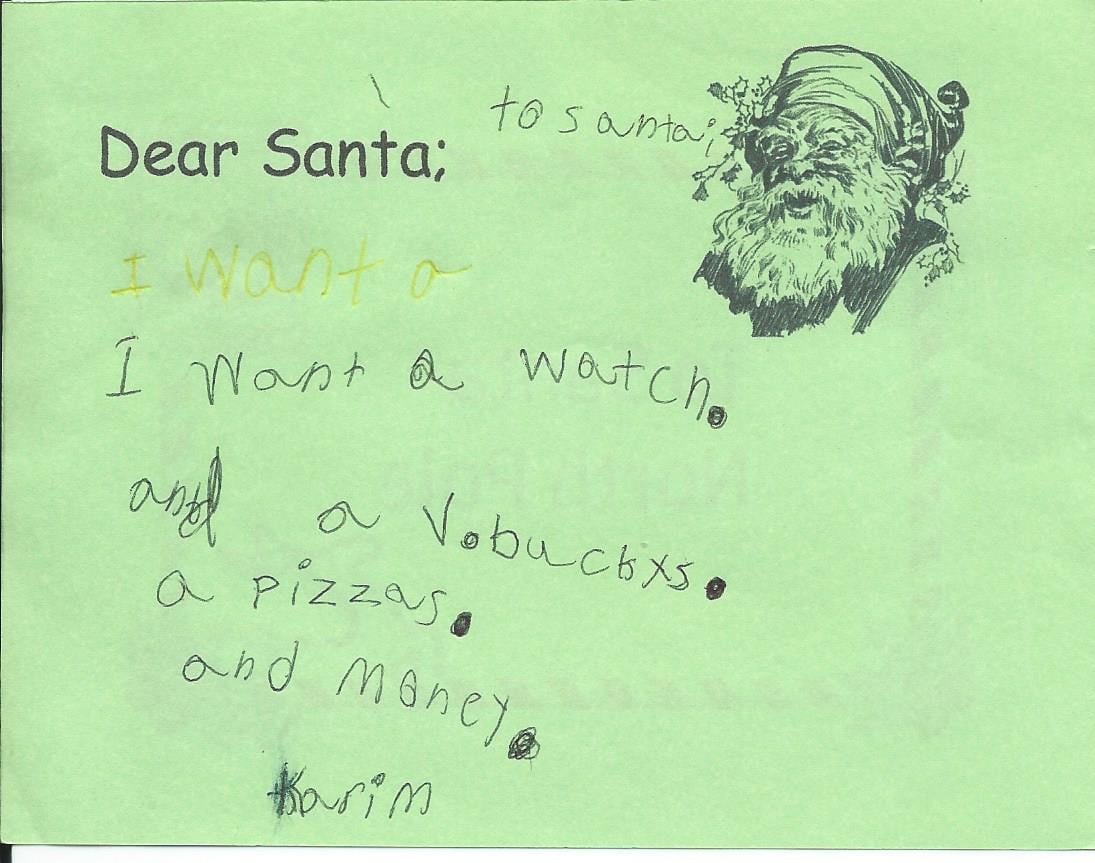 to santa;
Dear Santa;
I want a
I want a watch.
and a V.buckxs.
a pizzas.
and money.
Karim